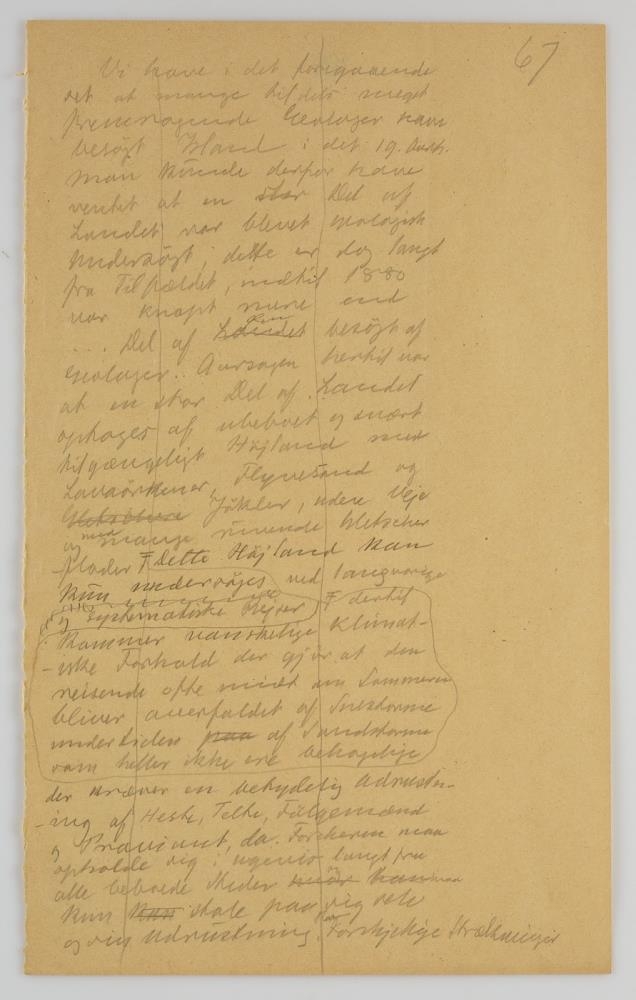 67
Vi have i det foregaaende
set at mange tildels meget
fremragende Geologer have
besøgt Island i det 19. Aarh.
man kunde derfor have
ventet at en stor Del af
Landet var blevet geologisk
undersøgt; dette er dog langt
fra Tilfældet, indtil 1880
var knapt mere end
... Del af Landet besøgt af
Geologer. Aarsagen hertil var
at en stor Del af Landet
optages af ubeboet og svært
tilgængeligt Højland med
Lavaörkener, Flyvesand og
Jökler, uden Veje
og med mange rivende Gletscher
floder F Dette Højland kan
kun undersøges ved langvarige
og systematiske Rejser F dertil
kommer vanskelige Klimat-
-iske Forhold der gjör at den
reisende ofte midt om Sommeren
bliver overfaldet af Snestorme
undertiden paa af Sandstorme
som heller ikke ere behagelige
der kræver en betydelig Udrust-
-ing af Heste, Telte, Fölgemænd
og Proviant, da Forskeren maa
opholde sig i ugevis langt fra
alle beboede Steder og maa
kun stole paa sig selv
og sin Udrustning. Forskjellige Strækninger